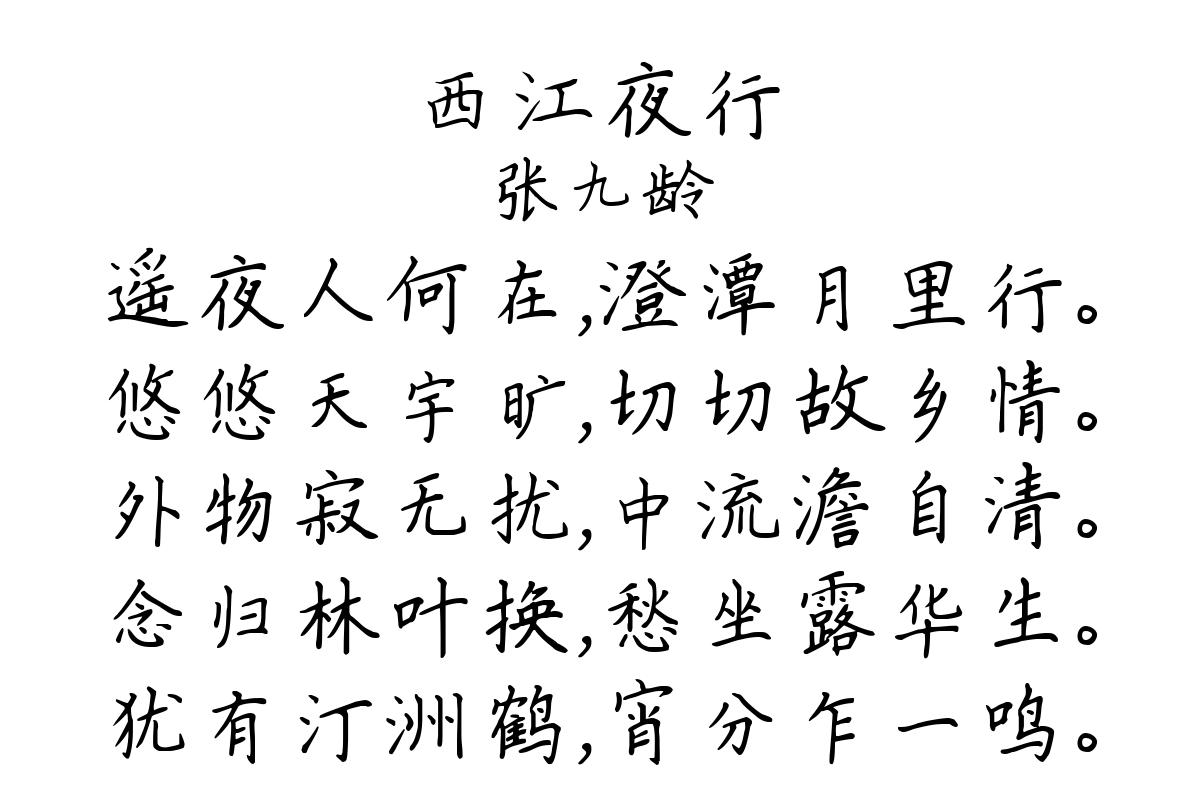 西江夜行
张九龄
遥夜人何在,澄潭月里行。
悠悠天宇旷,切切故乡情。
外物寂无扰,中流澹自清。
念归林叶换,愁坐露华生。
犹有汀洲鹤,宵分乍一鸣。